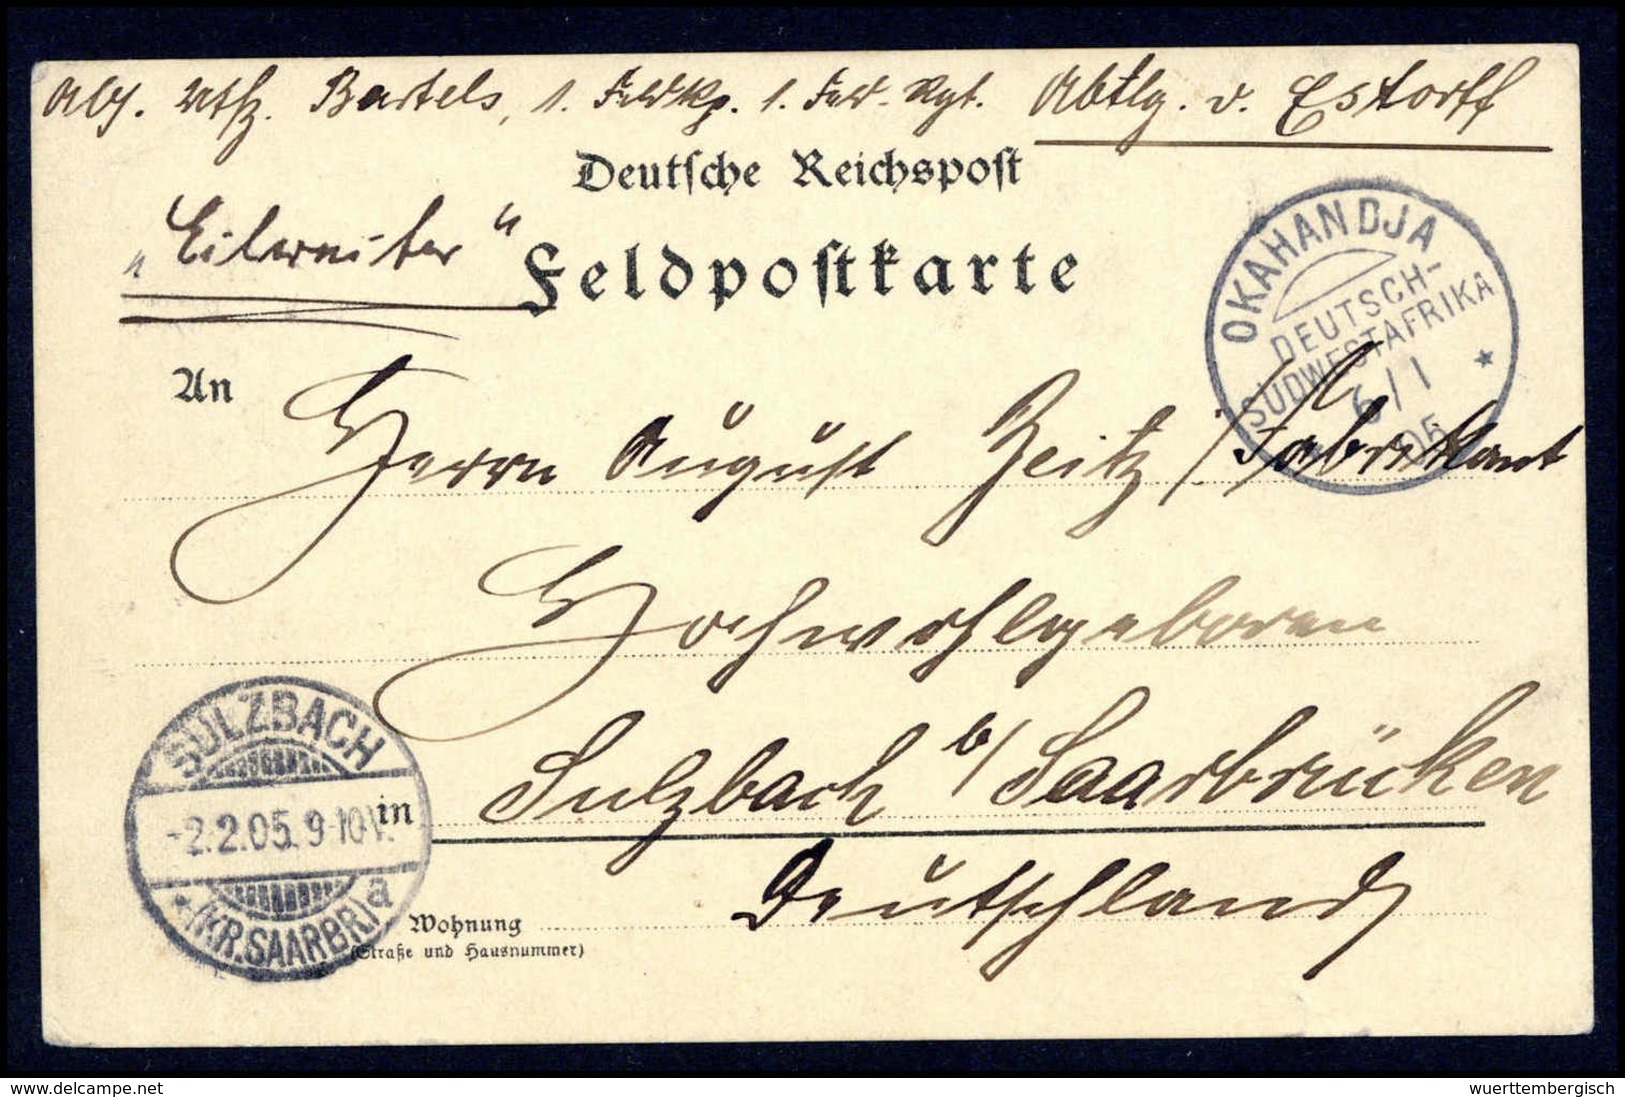 Abs. Utfz. Bartels, 1. Feldkp. 1. Feld-Rgt. Abtlg. v. Estorff
Deutsche Reichspost
„Eilreiter“
Feldpostkarte
OKAHANDJA
DEUTSCH-
SÜDWESTAFRIKA
6/1
05
An
Herrn August Zeitz / Fabrikant
Hochwohlgeboren
SULZBACH
-2.2.05. 9-10V.
* (KR. SAARBR) a
in
Sulzbach b/Saarbrücken
Deutschland
Wohnung
(Straße und Hausnummer)
delcampe.net
wuerttembergisch